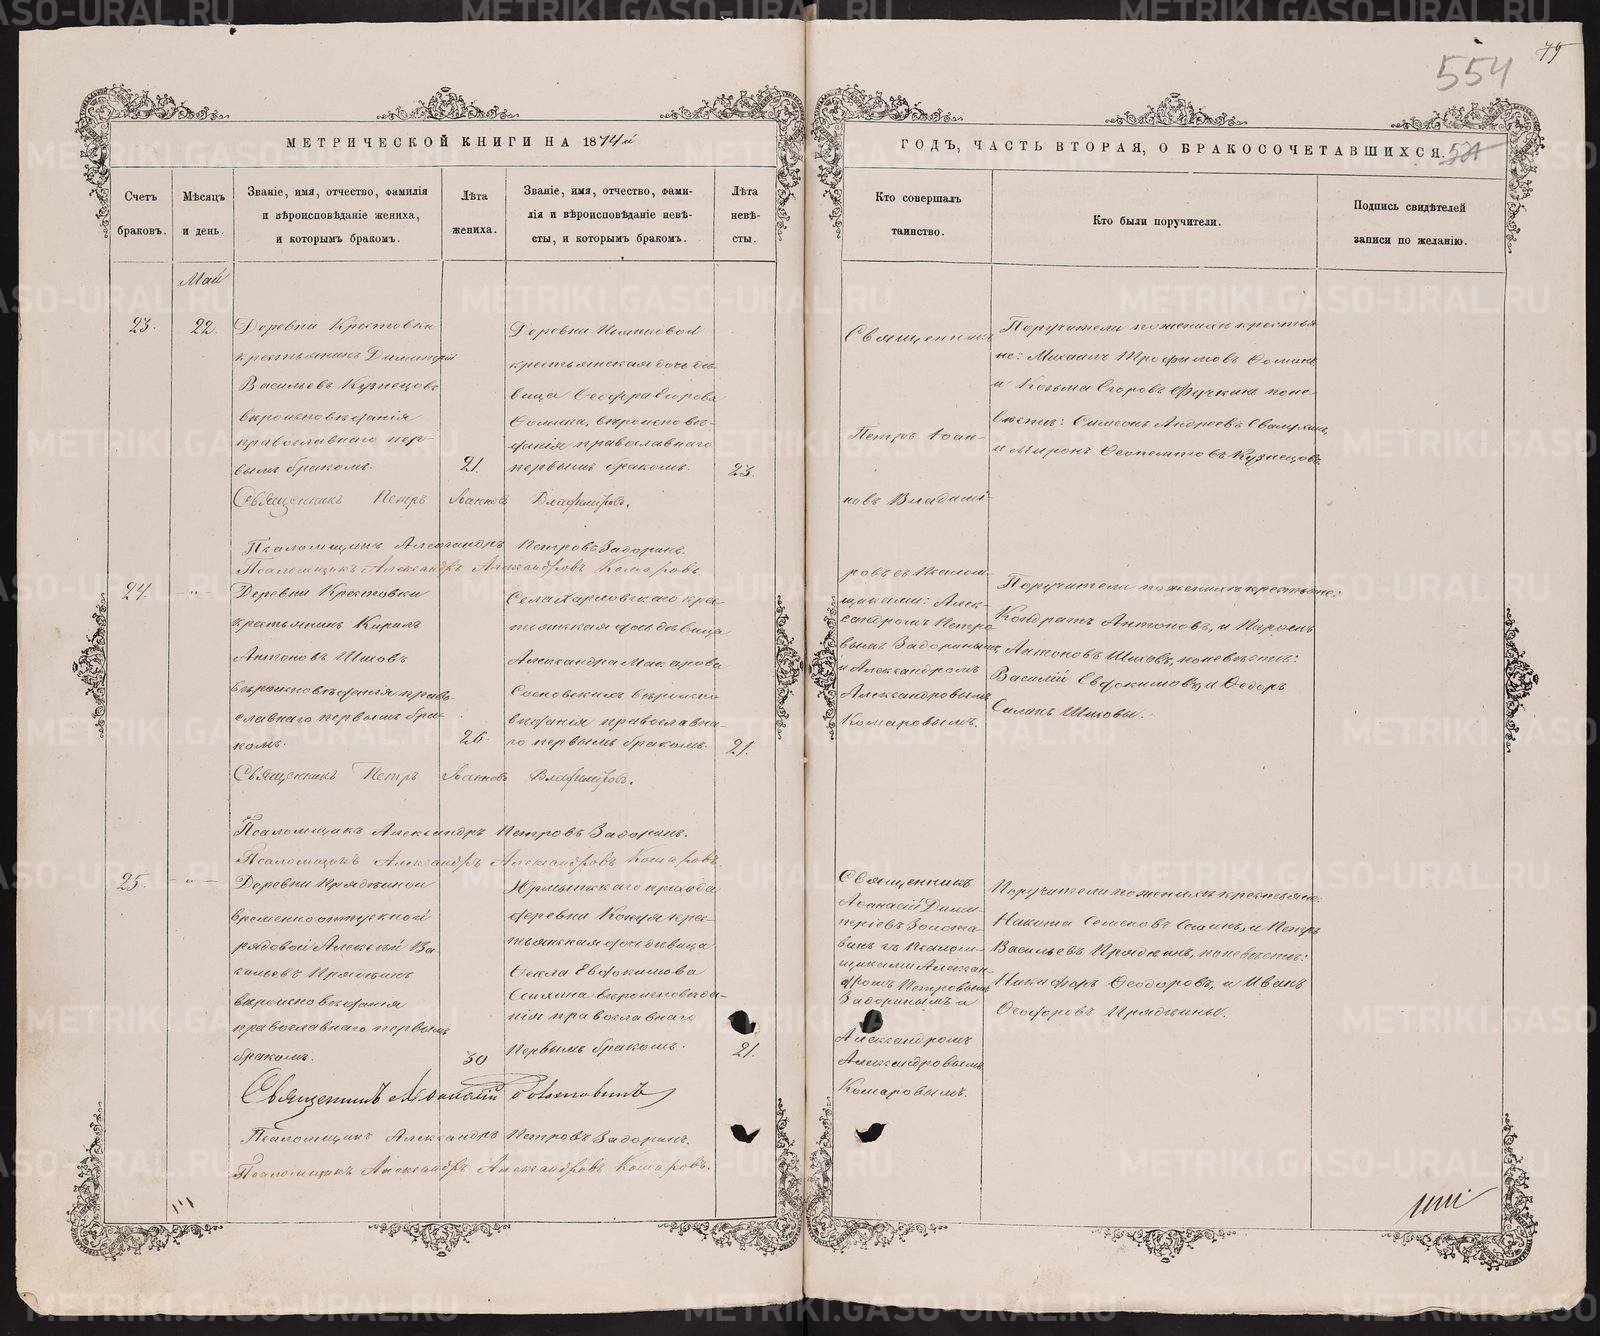 79
554
МЕТРИЧЕСКОЙ КНИГИ НА 1874й
ГОДЪ, ЧАСТЬ ВТОРАЯ, О БРАКОСОЧЕТАВШИХСЯ.
521
Счетъ
браковъ.
Мѣсяцъ
и день.
Званіе, имя, отчество, фамилія
и вѣроисповѣданіе жениха,
и которымъ бракомъ.
Лѣта
жениха.
Званіе, имя, отчество, фами-
лія и вѣроисповѣданіе невѣ-
сты, и которымъ бракомъ.
Лѣта
невѣ-
сты.
Кто совершалъ
таинство.
Кто были поручители.
Подпись свидѣтелей
записи по желанію.
Май
23.
22.
Деревни Крестовки
крестьянинъ Димитрій
Васильевъ Кузнецовъ
вѣроисповѣданія
православнаго пер-
вымъ бракомъ.
21.
Деревни
крестьянская дочь дѣ-
вица Ѳеодора Егорова
Ѳомина, вѣроисповѣ-
данія православнаго
первымъ бракомъ.
23.
Священникъ
Петръ Іоан-
новъ Владимі-
ровъ съ Псалом-
щиками: Алек-
сандромъ Петро
вымъ Задоринымъ
и Александромъ
Александровымъ
Комаровымъ.
Поручители по женихѣ крестья
не: Михаилъ Трофимовъ Ѳоминъ
и Козьма Егоровъ поне-
вѣстѣ: Симеонъ Андреевъ
и Миронъ Кузнецовъ
Священникъ Петръ Іоанновъ Владиміровъ.
Псаломщикъ Александръ Петровъ Задоринъ.
Псаломщикъ Александръ Александровъ Комаровъ.
24.
- " -
Деревни Крестовки
крестьянинъ Кирилъ
Антоновъ Шиховъ
вѣроисповѣданія право-
славнаго первымъ бра-
комъ.
26.
Села Харловскаго крес-
тьянская дочь дѣвица
Александра Макарова
Сосновскихъ вѣроиспо
вѣданія православна-
го первымъ бракомъ.
21.
Поручители по женихѣ крестьяне:
Кондратъ Антоновъ, и Парѳенъ
Антоновъ Шиховъ, поневѣстѣ:
Василій Евдокимовъ, и Ѳедоръ
Силинъ Шиховы.
Священникъ Петръ Іоанновъ Владиміровъ.
Псаломщикъ Александръ Петровъ Задоринъ.
Псаломщикъ Александръ Александровъ Комаровъ.
25.
- " -
Деревни Прядеиной
временно отпускной
рядовой Алексѣй Ва-
сильевъ Прядеинъ
вѣроисповѣданія
православнаго первымъ
бракомъ.
30
Юрмытскаго прихода
деревни Кокуя крес-
тьянская дочь дѣвица
Ѳекла Евдокимова
вѣроисповѣда-
нія православнаго
первымъ бракомъ.
21.
Священникъ
Аѳанасій Дими-
тріевъ Золота-
винъ съ Псалом-
щиками Алексан-
дромъ Петровымъ
Задоринымъ и
Александромъ
Александровымъ
Комаровымъ.
Поручители по женихѣ крестьяне:
Никита Семеновъ и Петръ
Васильевъ Прядеинъ, поневѣстѣ:
Никифоръ Ѳеодоровъ, и Иванъ
Ѳеодоровъ Прядеины.
Священникъ Аѳанасій Золотавинъ
Псаломщикъ Александръ Петровъ Задоринъ.
Псаломщикъ Александръ Александровъ Комаровъ.
METRIKI.GASO-URAL.RU